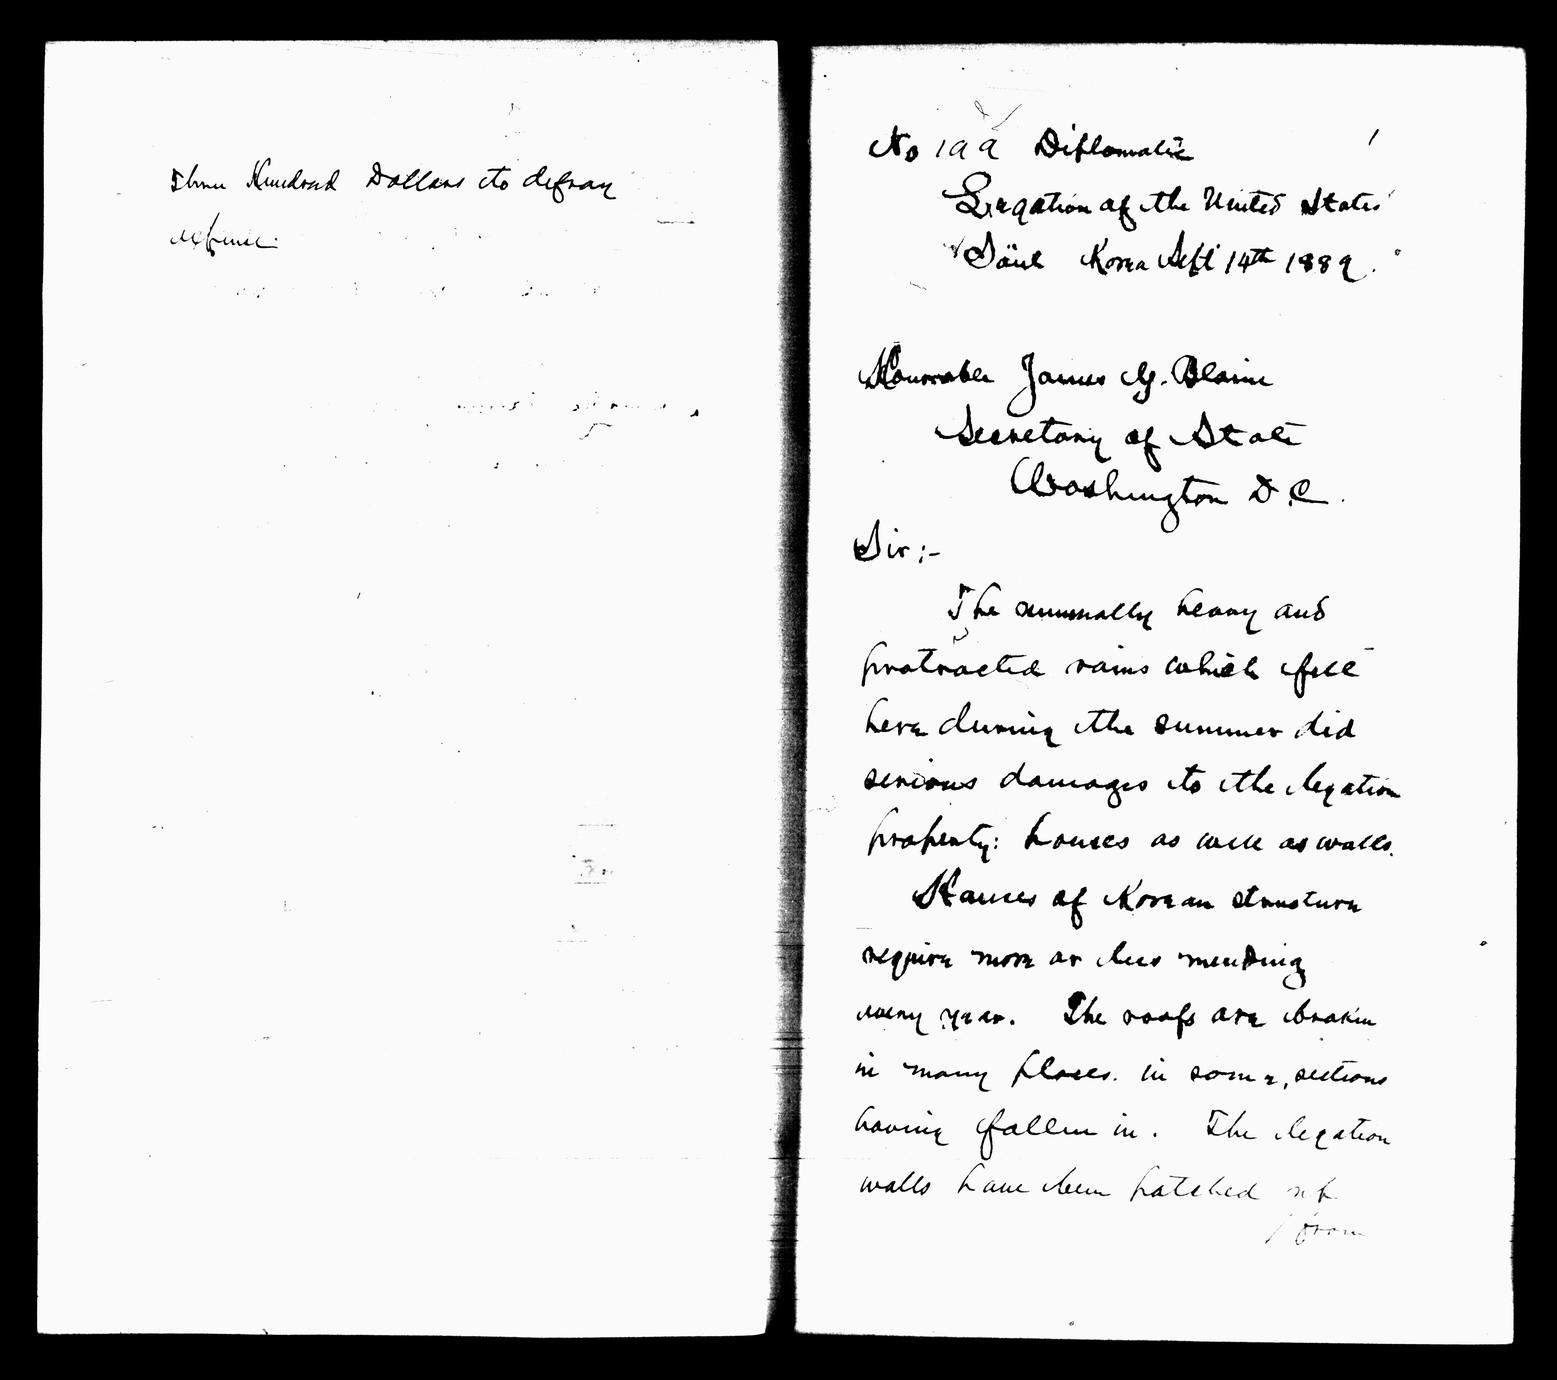 Three Hundred Dollars to defray
expense.
No 199 Diplomatic
Legation of the United States
Söul Korea Sept 14th 1889.
Honorable James G. Blaine
Secretary of State
Washington D.C.
Sir:-
The unusually heavy and
protracted rains which fell
here during the summer did
serious damages to the legation
property: houses as well as walls.
Houses of Korean structure
require more or less mending
every year. The roofs are broken
in many places. in some, sections
having fallen in. The legation
walls have been patched up
from